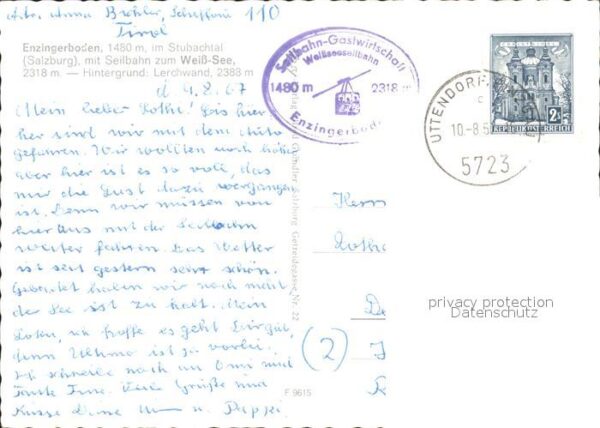 Abs. Anna Bröhler, Scheffau 110
Tirol
Enzingerboden, 1480 m, im Stubachtal
(Salzburg), mit Seilbahn zum Weiß-See,
2318 m. — Hintergrund: Lerchwand, 2383 m
d. 4.8.67
Mein lieber Lothar! Bis hier
her sind wir mit dem Auto
gefahren. Wir wollten noch höher
aber hier ist es so voll, das
mir die Lust dazu vergangen
ist. Denn wir müssen von
hier aus mit der Seilbahn
weiter fahren. Das Wetter
ist seit gestern sehr schön.
Gebadet haben wir noch nicht
der See ist zu kalt. Mein
Lothar, ich hoffe es geht Dir gut,
denn Ultimo ist ja vorbei.
Ich schreibe noch an Omi und
Tante Trine. Viele Grüße und
Küsse Deine Mimi u. Pappi
Seilbahn-Gastwirtschaft
Weißseeseilbahn
1480 m 2318 m
Enzingerboden
UTTENDORF
10.-8.
5723
REPUBLIK ÖSTERREICH
Getreidegasse Nr. 22
F 9615
Herrn
Lotha
(2)
privacy protection
Datenschutz